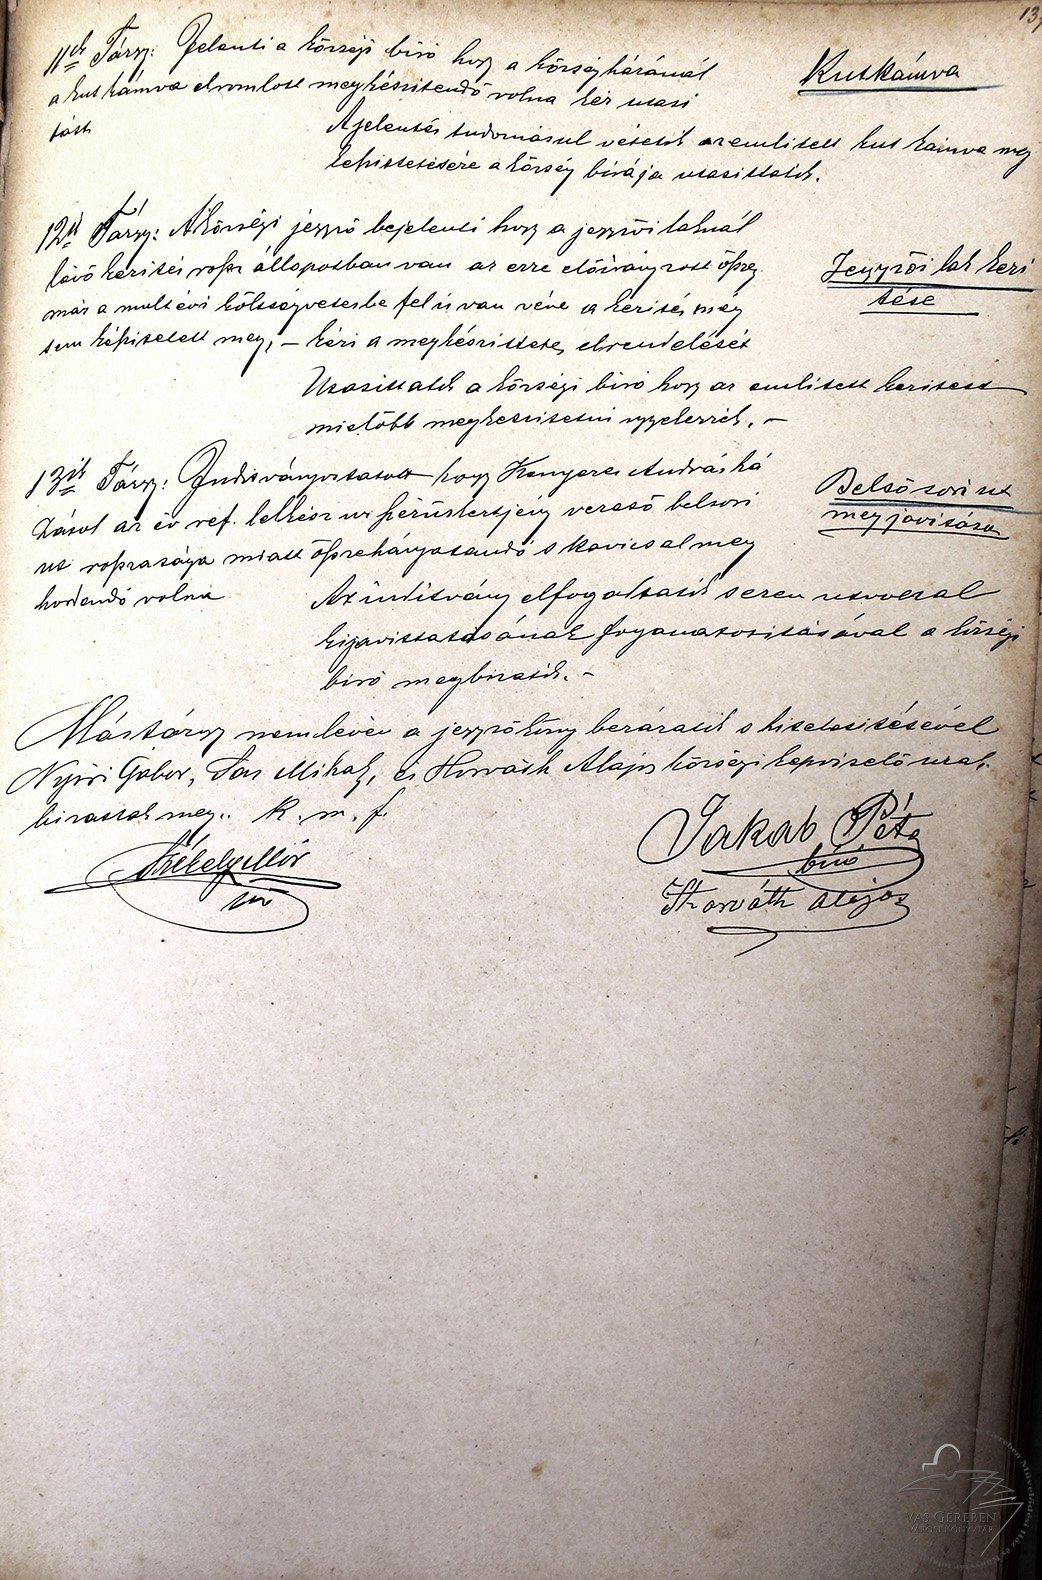 13
11ik Tárgy: Jelenti a községi biró hogy a községházánál
a kut kámva elromlott megkészitendő volna kér utasi
tást
Kutkámva
A jelentés tudomásul vétetik az emlitett kut kámva meg
képittetésére a község birája utasittatik.
12ik Tárgy: A községi jegyző bejelenti hogy a jegyzői laknál
lévő kerités rossz állapotban van az erre előirányzott össze
már a mult évi költségvetésbe fel is van véve a kerités még
sem képitetett meg, – kéri a megkészittetés elrendelését
Jegyzői lak keri
tése
Utasittatik a községi biró hogy az emlitett keritést
mielőbb megkészitetni ügyekezzék. –
13ik Tárgy: Inditványoztatott hogy Kenyeres András há
zától az év. ref. lelkész ur vezető belsori
ut rosszasága miatt összehányatandó s kavicsal meg
hordandó volna
Belső sori ut
megjavitása
Az inditvány elfogadtatik s ezen utvonal
kijavittatásának foganatositásával a községi
biró megbizatik. –
Más tárgy nem lévén a jegyzőköny bezáratik s hitelesitésével
Nyiri Gábor, Sas Mihály, és Horváth Alajos községi képviselő urak
bizattak meg. K. m. f.
Székely Mór
Jakab Péter
biró
Horváth Alajos
VAS GEREBEN
VÁROSI KÖNYVTÁR